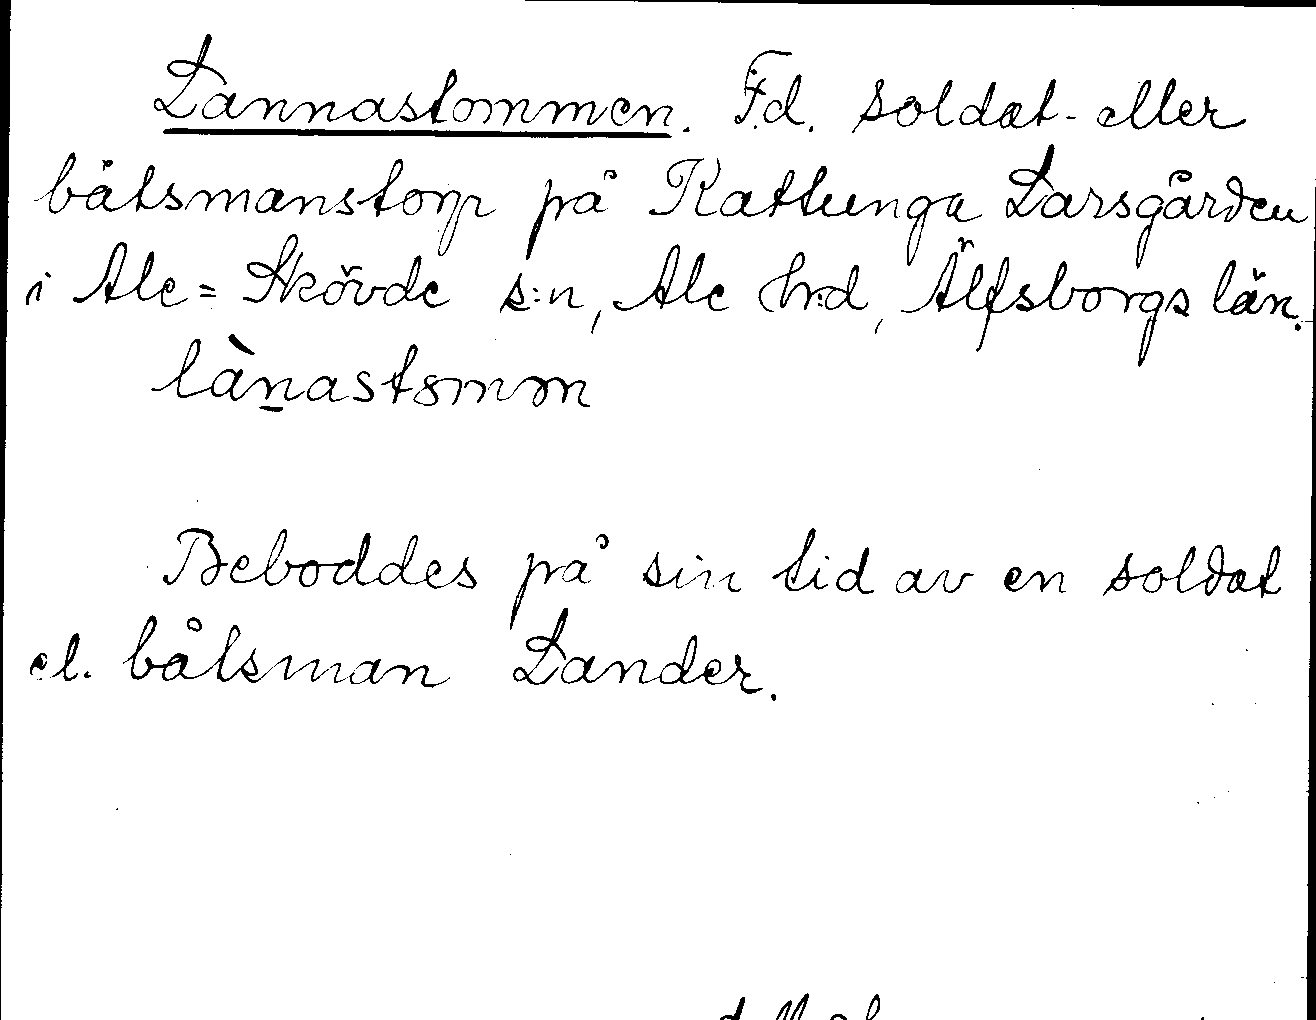 Lannastommen. F.d. soldat- eller
båtsmanstorp på Kattunga Larsgården
i Ale=Skövde s:n, Ale hrd, Älfsborgs län.
lànastomm
Beboddes på sin tid av en soldat
el. båtsman Lander.